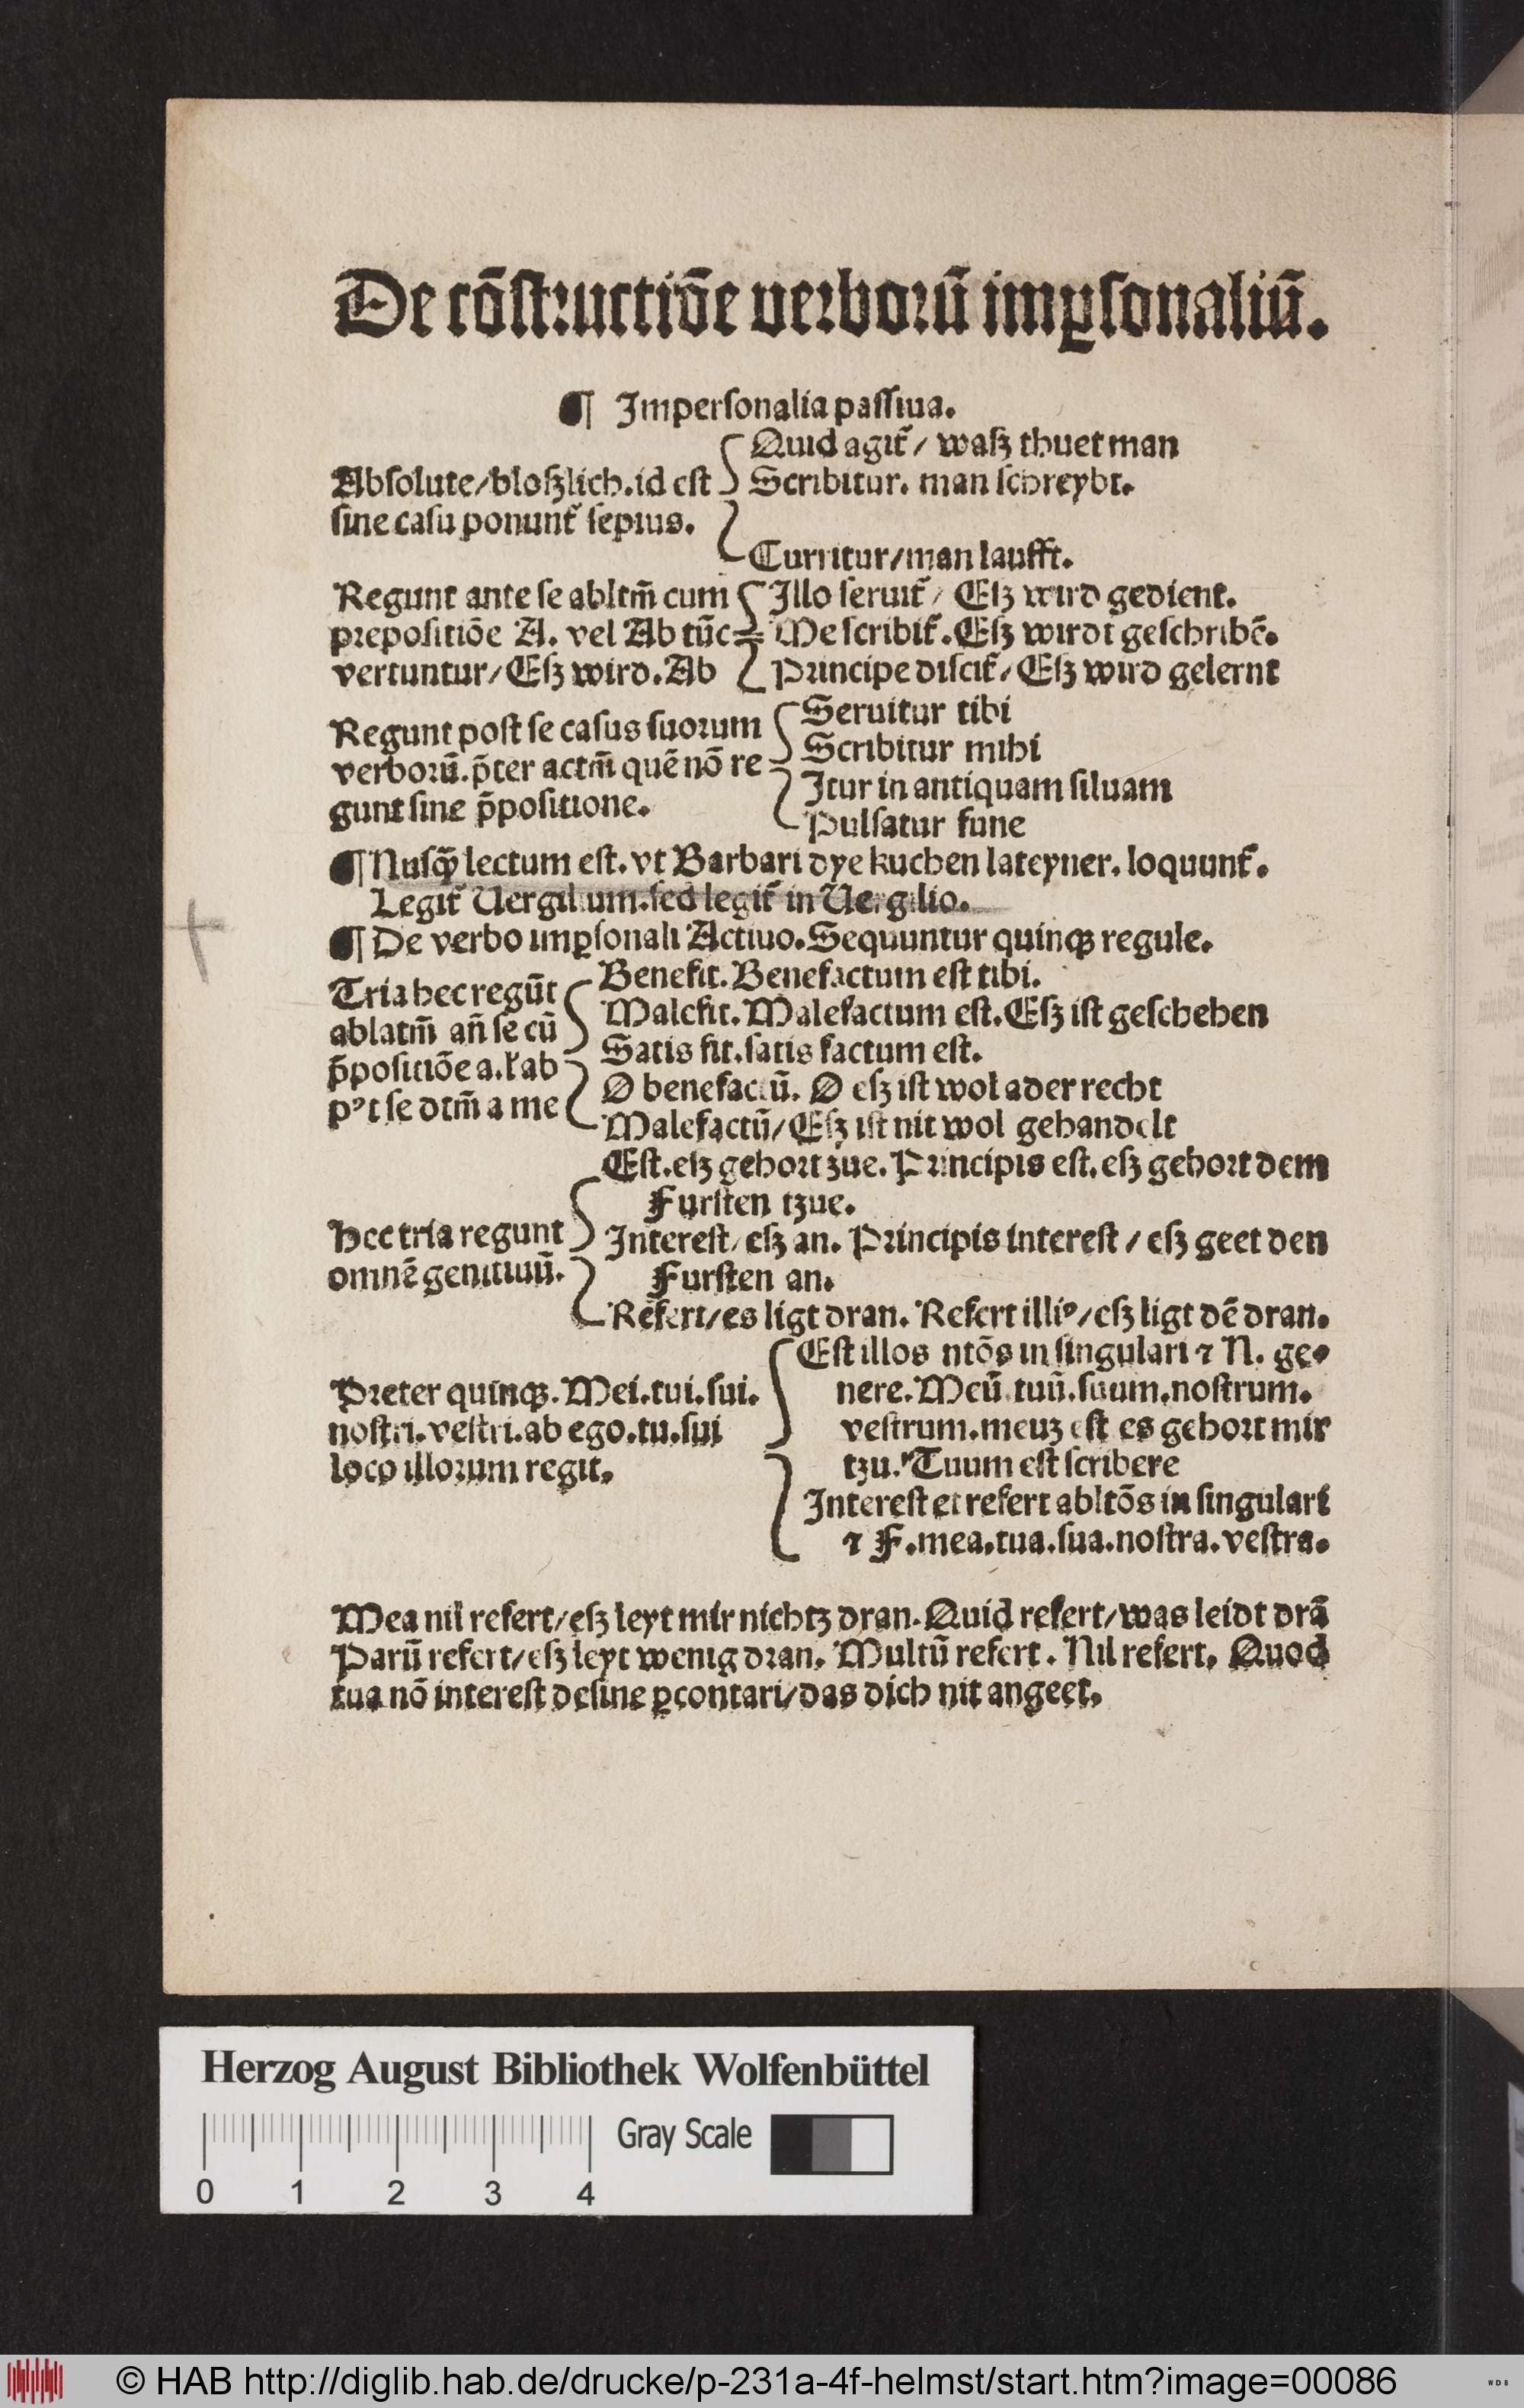 De cõſtructiõe verborũ imꝑſonaliũ.
¶ Imperſonalia paſſiua.
Absolute/bloſzlich.id eſt
ſine caſu ponunt᷑ ſepius.
Quid agit᷑/ waſz thuet man
Scribitur. man ſchreybt.
Curritur/man laufft.
Regunt ante ſe abltm̃ cum
prepoſitiõe A. vel Ab tũc
vertuntur/Eſz wird.Ab
Illo ſeruit᷑/ Eſz wird gedient.
Me ſcribit᷑.Eſz wirdt geſchribẽ.
Principe diſcit᷑/Eſz wird gelernt
Regunt poſt ſe caſus ſuorum
verborũ.p̃ter actm̃ quẽ nõ re
gunt ſine p̃poſitione.
Seruitur tibi
Scribitur mihi
Itur in antiquam ſiluam
Pulſatur fune
¶ Nuſqꝫ̃ lectum eſt.vt Barbari dye kuchen lateyner.loquunt᷑.
Legit᷑ Uergilium.ſed legit᷑ in Uergilio.
¶ De verbo imꝑſonali Actiuo.Sequuntur quinqꝫ regule.
Tria hec regũt
ablatm̃ añ ſe cũ
p̃poſitiõe a.ł ab
pꝰt ſe dtm̃ a me
Benefit.Benefactum eſt tibi.
Malefit.Malefactum eſt.Eſz iſt geſchehen
Satis fit.ſatis factum eſt.
O benefactũ. O eſz iſt wol ader recht
Malefactũ/Eſz iſt nit wol gehandelt
Hec tria regunt
omnẽ genitiuũ.
Eſt.eſz gehort zue.Principis eſt.eſz gehort dem
Furſten tzue.
Intereſt/eſz an. Principis intereſt/eſz geet den
Furſten an.
Refert/es ligt dran. Refert illiꝰ/eſz ligt dẽ dran.
Preter quinqꝫ.Mei.tui.ſui.
noſtri.veſtri.ab ego.tu.ſui
loco illorum regit.
Eſt illos ntõs in ſingulari ⁊ N. ge-
nere.Meũ.tuũ.ſuum.noſtrum.
veſtrum.meuz eſt es gehort mir
tzu. Tuum eſt ſcribere
Intereſt et refert abltõs in ſingulari
⁊ F.mea.tua.ſua.noſtra.veſtra.
Mea nil refert/eſz leyt mir nichtz dran.Quid refert/was leidt drã
Parũ refert/eſz leyt wenig dran. Multũ refert. Nil refert. Quod
tua nõ intereſt deſine ꝑcontari/das dich nit angeet.
Herzog August Bibliothek Wolfenbüttel
Gray Scale
0 1 2 3 4
© HAB http://diglib.hab.de/drucke/p-231a-4f-helmst/start.htm?image=00086
WDB